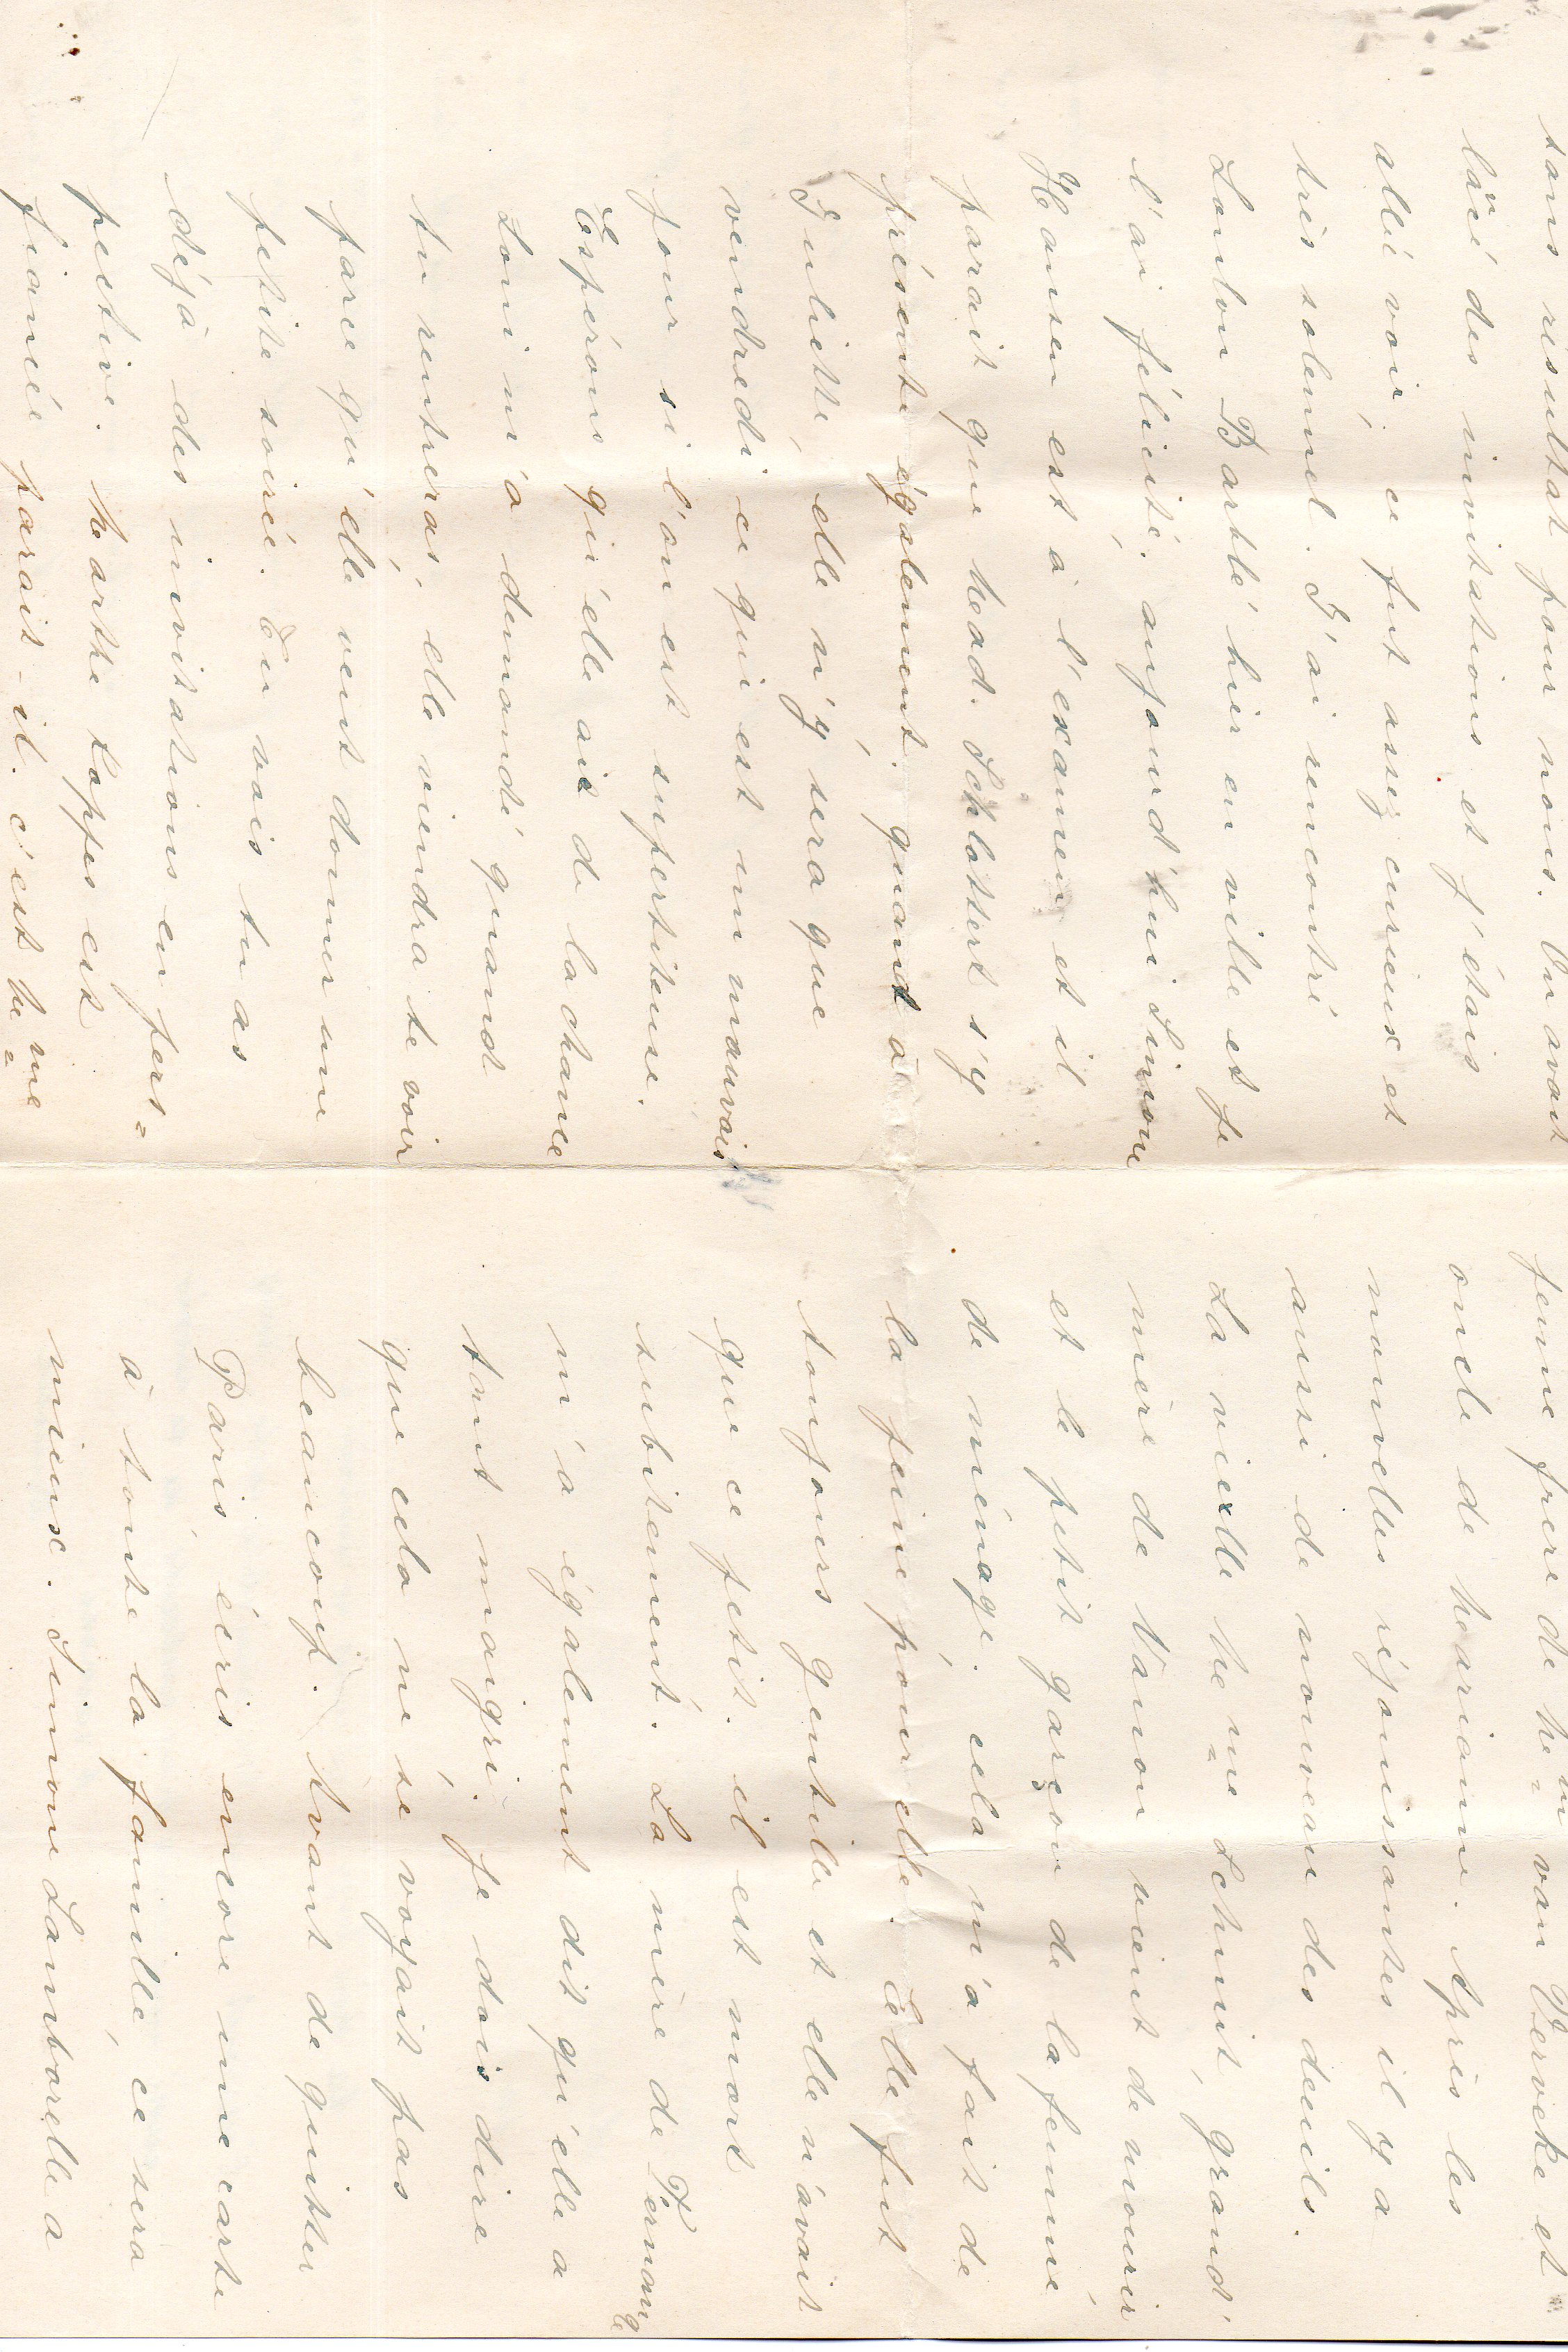 sans résultat pour nous. On avait
lancé des invitations et j'étais
allée voir, ce fut assez curieux et
très solennel. J'ai rencontré
Lonlou Barblé hier en ville et je
l'ai félicité, aujourd'hui Simone
Hansen est à l'examen et il
parait que Mad. Schlottert s'y
présente également, quand à
Juliette, elle n'y sera que
vendredi ce qui est un mauvais
jour si l'on est supertiteuse.
Espérons qu'elle aie de la chance
Loni m'a demandé quand
tu rentreras, elle viendra te voir
parce qu'elle veut donner une
petite soirée. Tu vois tu as
déjà des invitations en pers=
pective. Marthe Koppes est
fiancée parait-il. c'est Mme
femme frere de Mm van Verveke et
oncle de Marianne. Après les
nouvelles réjouissantes il y a
aussi de nouveau des deuils.
La vieille Mme Schmit, grand'
mère de Vanon vient de mourir
et le petit garçon de la femme
de ménage. cela m'a fait de
la peine pour elle. Elle fut
toujours gentille et elle n'avait
que ce petit. il est mort
subitement. La mère de Fernange
m'a également dit qu'elle a
tant maigri, je dois dire
que cela ne se voyait pas
beaucoup. Avant de quitter
Paris, écris encore une carte
à toute la famille, ce sera
mieux. Simone Lamborelle a